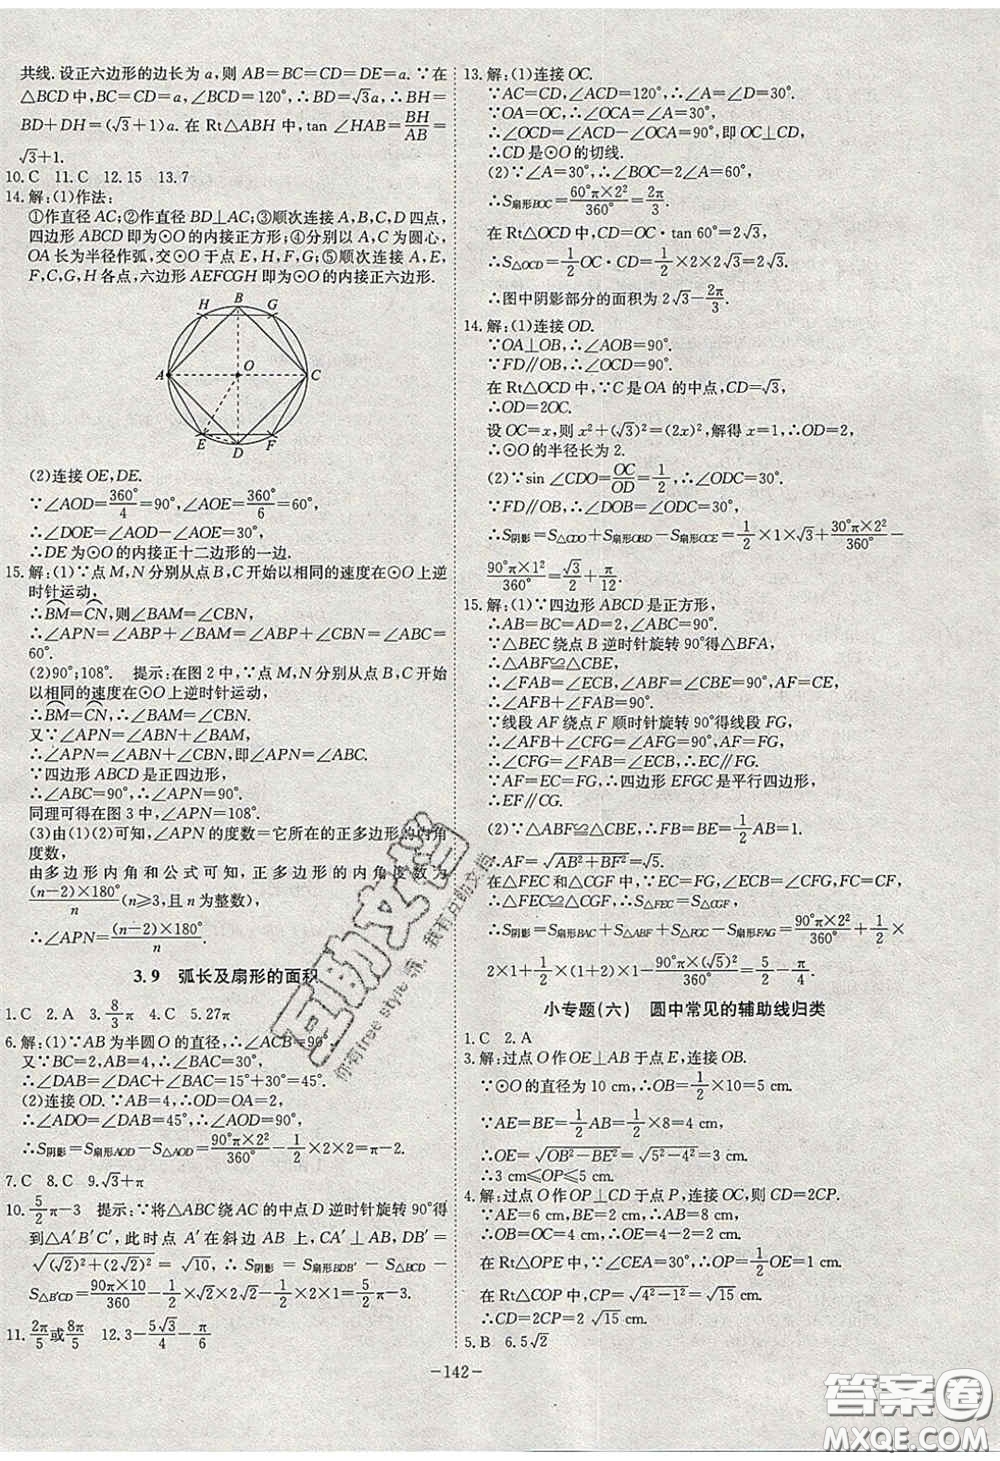 共线.设正六边形的边长为a,则AB=BC=CD=DE=a.∵在
△BCD中,BC=CD=a,∠BCD=120°,∴BD=√3a,∴BH=
BD+DH=(√3+1)a.在Rt△ABH中,tan∠HAB=BH/AB=
√3+1.
10.C 11.C 12.15 13.7
14.解:(1)作法:
①作直径AC;②作直径BD⊥AC;③顺次连接A,B,C,D四点,
四边形ABCD即为⊙O的内接正方形;④分别以A,C为圆心,
OA长为半径作弧,交⊙O于点E,H,F,G;⑤顺次连接A,E,
F,C,G,H各点,六边形AEFCGH即为⊙O的内接正六边形.
H B G
A O C
E D F
(2)连接OE,DE.
∵∠AOD=360°/4=90°,∠AOE=360°/6=60°,
∴∠DOE=∠AOD-∠AOE=30°,
∴DE为⊙O的内接正十二边形的一边.
15.解:(1)∵点M,N分别从点B,C开始以相同的速度在⊙O上逆
时针运动,
∴BM=CN,则∠BAM=∠CBN,
∴∠APN=∠ABP+∠BAM=∠ABP+∠CBN=∠ABC=
60°.
(2)90°;108° 提示:在图2中,∵点M,N分别从点B,C开始
以相同的速度在⊙O上逆时针运动,
∴BM=CN,∴∠BAM=∠CBN.
又∵∠APN=∠ABN+∠BAM,
∴∠APN=∠ABN+∠CBN,即∠APN=∠ABC.
∵四边形ABCD是正四边形,
∴∠ABC=90°,∴∠APN=90°.
同理可得在图3中,∠APN=108°.
(3)由(1)(2)可知,∠APN的度数=它所在的正多边形的内角
度数,
由多边形内角和公式可知,正多边形的内角度数为
(n-2)×180°/n(n≥3,且n为整数),
∴∠APN=(n-2)×180°/n.
3.9 弧长及扇形的面积
1.C 2.A 3.8/3π 4.C 5.27π
6.解:(1)∵AB为半圆O的直径,∴∠ACB=90°.
又∵BC=2,AB=4,∴∠BAC=30°,
∴∠DAB=∠DAC+∠BAC=15°+30°=45°.
(2)连接OD.∵AB=4,∴OD=OA=2,
∴∠ADO=∠DAB=45°,∴∠AOD=90°,
∴S阴影=S扇形AOD-S△AOD=90°π×2²/360°-1/2×2×2=π-2.
7.C 8.C 9.√3+π
10.5/2π-3 提示:∵将△ABC绕AC的中点D逆时针旋转90°得
到△A'B'C',此时点A'在斜边AB上,CA'⊥AB,DB'=
√(√2)²+(2√2)²=√10,∴S阴影=S扇形BDB'-S△BCD-
S△B'CD=90π×10/360-1/2×√2×2√2-1/2×√2×√2=5/2π-3.
11.2π/5或8π/5 12.3-5√3/4-π/6
13.解:(1)连接OC.
∵AC=CD,∠ACD=120°,∴∠A=∠D=30°.
∵OA=OC,∴∠OCA=∠A=30°,
∴∠OCD=∠ACD-∠OCA=90°,即OC⊥CD,
∴CD是⊙O的切线.
(2)∵∠A=30°,∴∠BOC=2∠A=60°,
∴S扇形BOC=60°π×2²/360°=2π/3.
在Rt△OCD中,CD=OC·tan 60°=2√3,
∴S△OCD=1/2OC·CD=1/2×2×2√3=2√3,
∴图中阴影部分的面积为2√3-2π/3.
14.解:(1)连接OD.
∵OA⊥OB,∴∠AOB=90°.
∵FD∥OB,∴∠OCD=90°.
在Rt△OCD中,∵C是OA的中点,CD=√3,
∴OD=2OC.
设OC=x,则x²+(√3)²=(2x)²,解得x=1,∴OD=2,
∴⊙O的半径长为2.
(2)∵sin∠CDO=OC/OD=1/2,∴∠ODC=30°.
∵FD∥OB,∴∠DOB=∠ODC=30°,
∴S阴影=S△CDO+S扇形OBD-S扇形OCE=1/2×1×√3+30°π×2²/360°-
90°π×1²/360°=√3/2+π/12.
15.解:(1)∵四边形ABCD是正方形,
∴AB=BC=AD=2,∠ABC=90°.
∵△BEC绕点B逆时针旋转90°得△BFA,
∴△ABF≌△CBE,
∴∠FAB=∠ECB,∠ABF=∠CBE=90°,AF=CE,
∴∠AFB+∠FAB=90°.
∵线段AF绕点F顺时针旋转90°得线段FG,
∴∠AFB+∠CFG=∠AFG=90°,AF=FG,
∴∠CFG=∠FAB=∠ECB,∴EC∥FG.
∵AF=EC=FG,∴四边形EFGC是平行四边形,
∴EF∥CG.
(2)∵△ABF≌△CBE,∴FB=BE=1/2AB=1,
∴AF=√AB²+BF²=√5.
在△FEC和△CGF中,∵EC=FG,∠ECF=∠GFC,FC=CF,
∴△FEC≌△CGF,∴S△FEC=S△CGF,
∴S阴影=S扇形BAC+S△ABF+S△CGF-S扇形FAG=90°π×2²/360°+1/2×
2×1+1/2×(1+2)×1-90°π×(√5)²/360°=5/2-π/4.
小专题(六) 圆中常见的辅助线归类
1.C 2.A
3.解:过点O作OE⊥AB于点E,连接OB.
∵⊙O的直径为10 cm,∴OB=1/2×10=5 cm.
∵AE=BE=1/2AB=1/2×8=4 cm,
∴OE=√OB²-BE²=√5²-4²=3 cm,
∴3 cm≤OP≤5 cm.
4.解:过点O作OP⊥CD于点P,连接OC,则CD=2CP.
∵AE=6 cm,BE=2 cm,∴AB=8 cm,
∴OB=OC=4 cm,∴OE=4-2=2 cm.
在Rt△OPE中,∵∠CEA=30°,∴OP=1/2OE=1 cm.
在Rt△COP中,CP=√4²-1²=√15 cm.
∴CD=2CP=2√15 cm.
5.B 6.5√2
-142-
互助文档
你有free style嘛, 我有互助文档
答案圈
MXQE.COM